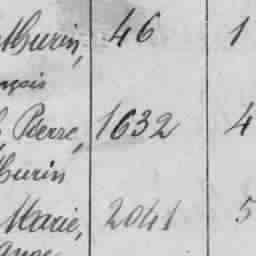 thurin, 46 1
nçois
Pierre, 1632 4
thurin
Marie, 2041 5